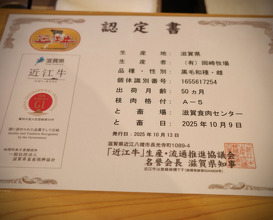 認定書
近江牛
滋賀県
近江牛
GI
生産地 : 滋賀県
生産者 : (有) 岡崎牧場
品種・性別 : 黒毛和種・雌
個体識別番号 : 1655617254
出荷月齢 : 50ヵ月
枝肉格付 : A-5
と畜場 : 滋賀食肉センター
と畜日 : 2025年10月9日
発行日 2025年10月13日
滋賀県近江八幡市長光寺町1089-4
「近江牛」生産・流通推進協議会
名誉会長 滋賀県知事